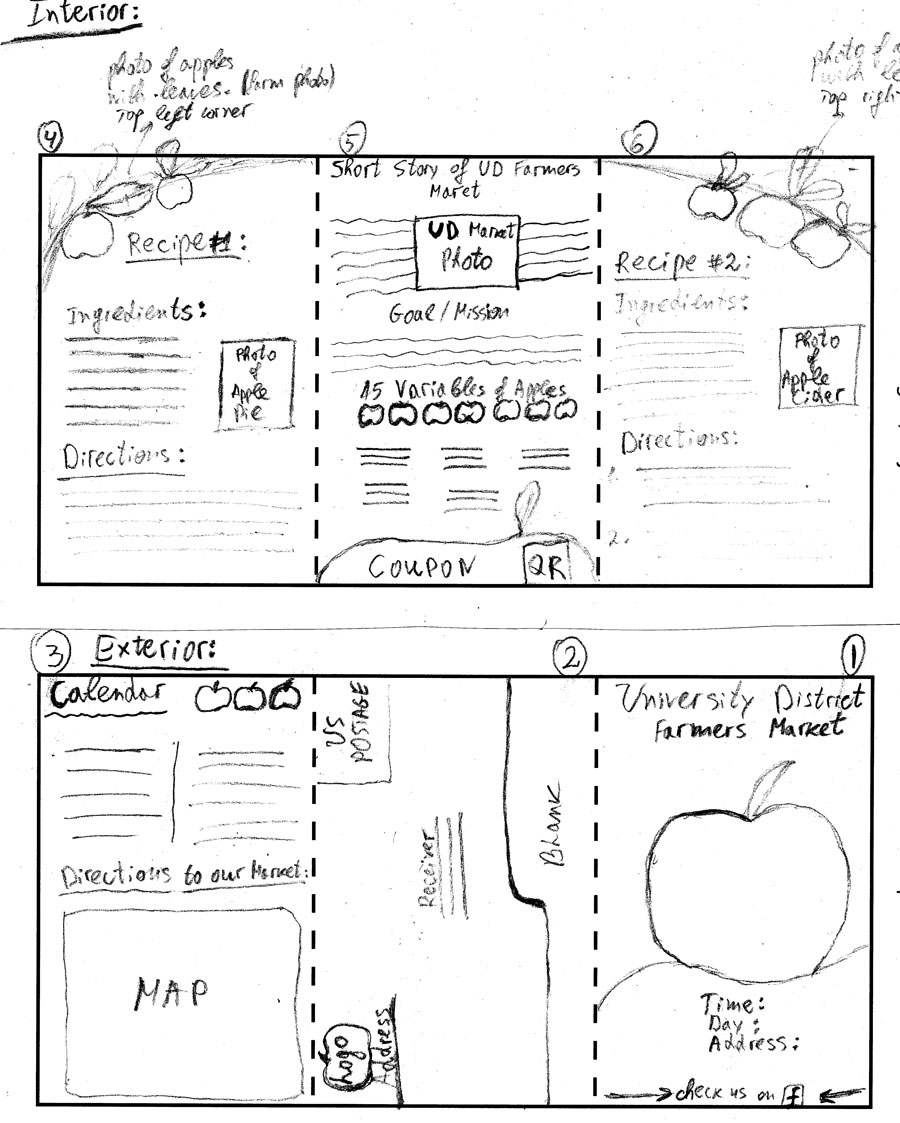 Interior:
photo of apples
with leaves. (farm photo)
Top left corner
photo of a
with le
Top righ
4
5
6
Recipe #1:
Ingredients:
Photo
of
Apple
Pie
Directions:
Short Story of UD Farmers
Maret
UD Market
Photo
Goal/Mission
15 Variables of Apples
COUPON
QR
Recipe #2:
Ingredients:
Photo
of
Apple
Cider
Directions:
1.
2.
3
Exterior:
2
1
Calendar
Directions to our Market:
MAP
US
POSTAGE
Receiver
Blank
Logo
Address
University District
Farmers Market
Time:
Day:
Address:
check us on f